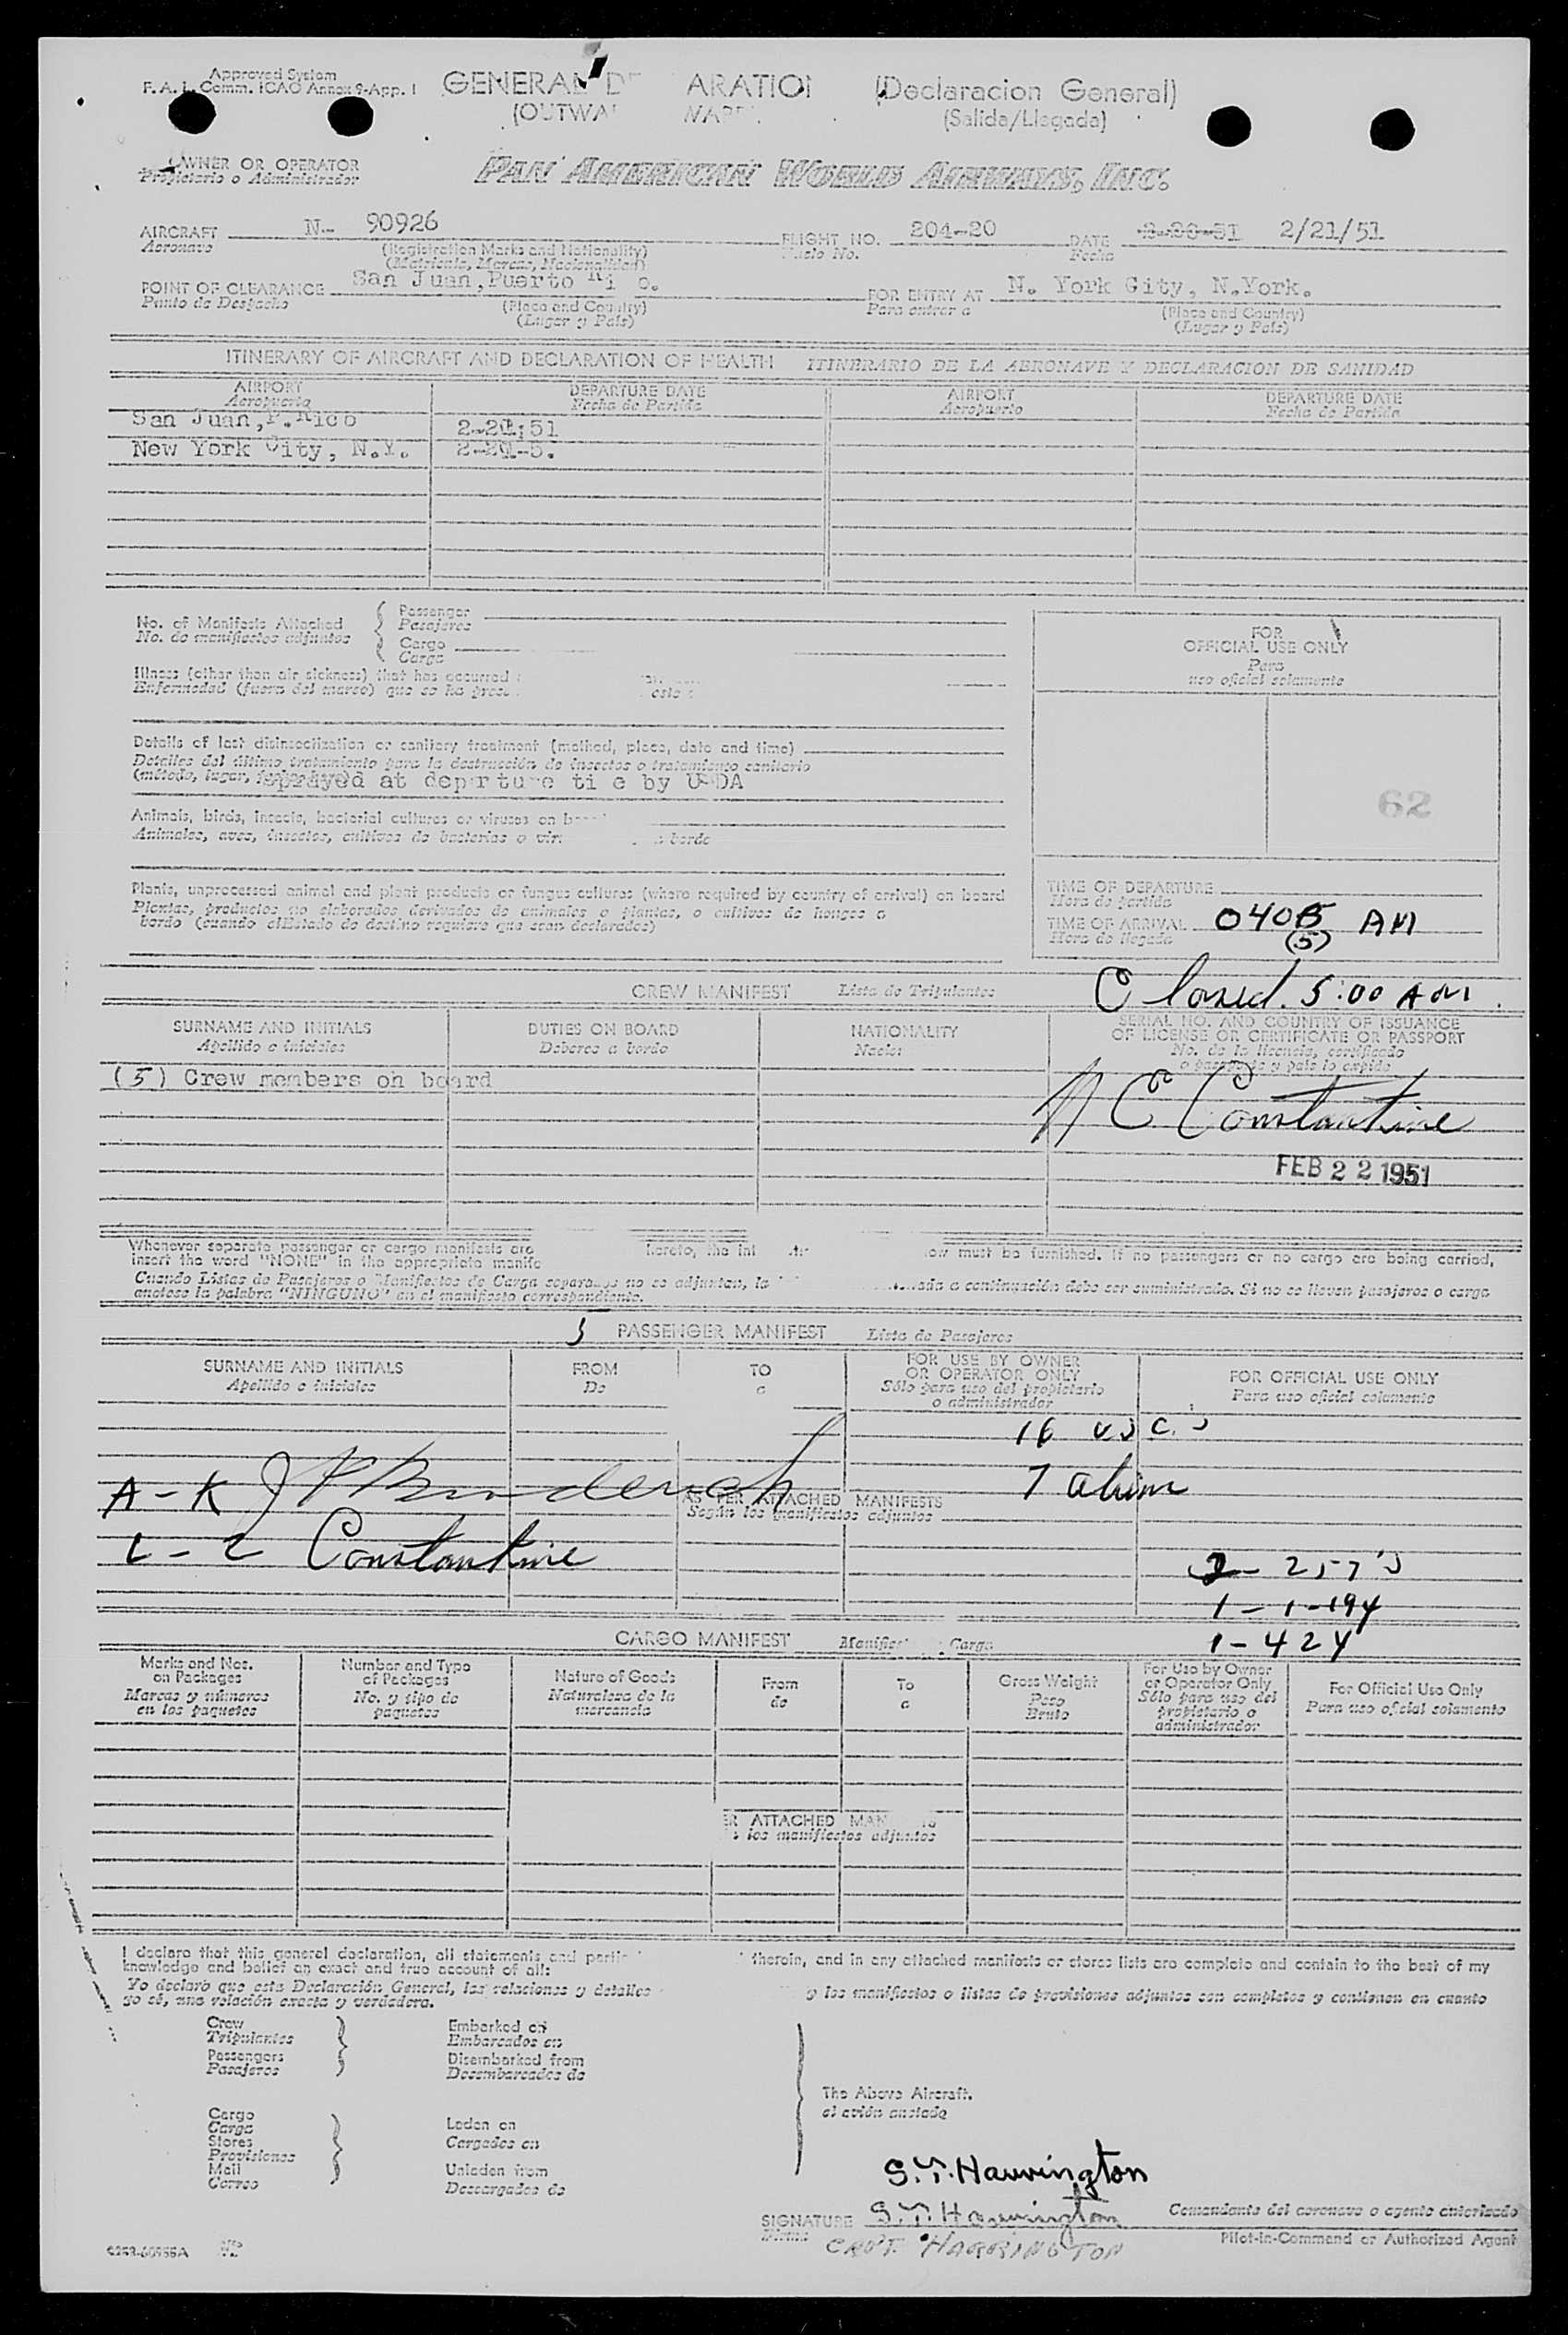 Approved System
F. A. L. Comm. ICAO Annex 9-App. I
GENERAL D ARATION (Declaracion General)
(OUTWA WARD (Salida/Llegada)
OWNER OR OPERATOR
Propietario o Administrador
PAN AMERICAN WORLD AIRWAYS, INC.
AIRCRAFT N- 90926 FLIGHT NO. 204-20 DATE 2-20-51 2/21/51
Aeronave (Registration Marks and Nationality) Vuelo No. Fecha
(Matricula, Marcas, Nacionalidad)
POINT OF CLEARANCE San Juan, Puerto Ri o. FOR ENTRY AT N. York City, N.York.
Punto de Despacho (Place and Country) Para entrar a (Place and Country)
(Lugar y País) (Lugar y País)
ITINERARY OF AIRCRAFT AND DECLARATION OF HEALTH ITINERARIO DE LA AERONAVE Y DECLARACION DE SANIDAD
AIRPORT DEPARTURE DATE AIRPORT DEPARTURE DATE
Aeropuerto Fecha de Partida Aeropuerto Fecha de Partida
San Juan, P.Rico 2-21-51
New York City, N.Y. 2-21-5.
No. of Manifests Attached Passenger
No. de manifiestos adjuntos Pasajeros
Cargo
Carga
FOR
OFFICIAL USE ONLY
Para
uso oficial solamente
Illness (other than air sickness) that has occurred
Enfermedad (fuera del mareo) que se ha
Details of last disinsectization or sanitary treatment (method, place, date and time)
Detalles del último tratamiento para la destrucción de insectos o tratamiento sanitario
(método, lugar,
sprayed at dep rture ti e by USDA
62
Animals, birds, insects, bacterial cultures or viruses on b
Animales, aves, insectos, cultivos de bacterias o vir bordo
Plants, unprocessed animal and plant products or fungus cultures (where required by country of arrival) on board
Plantas, productos no elaborados derivados de animales o plantas, o cultivos de hongos a
bordo (cuando el Estado de destino requiere que sean declarados)
TIME OF DEPARTURE
Hora de partida
TIME OF ARRIVAL 0405 AM
Hora de llegada (5)
Closed. 5:00 AM.
CREW MANIFEST Lista de Tripulantes
SURNAME AND INITIALS DUTIES ON BOARD NATIONALITY SERIAL NO. AND COUNTRY OF ISSUANCE
Apellido e iniciales Deberes a bordo OF LICENSE OR CERTIFICATE OR PASSPORT
No. de la licencia, certificado
o pasaporte y país lo expide
(5) Crew members on board
N C Constantine
FEB 22 1951
Whenever separate passenger or cargo manifests are hereto, the ow must be furnished. If no passengers or no cargo are being carried,
insert the word "NONE" in the appropriate manife
Cuando Listas de Pasajeros o Manifiestos de Carga separados no se adjuntan, la a continuación debe ser suministrada. Si no se llevan pasajeros o carga
anotese la palabra "NINGUNO" en el manifiesto correspondiente.
5 PASSENGER MANIFEST Lista de Pasajeros
SURNAME AND INITIALS FROM TO FOR USE BY OWNER FOR OFFICIAL USE ONLY
Apellido e iniciales De a OR OPERATOR ONLY Para uso oficial solamente
Sólo para uso del propietario
o administrador
16 USC.s
A-K 7 aliens
AS PER ATTACHED MANIFESTS
Según los manifiestos adjuntos
L-Z Constantine
2- 257's
1-1-194
1-424
CARGO MANIFEST Carga
Marks and Nos. Number and Type Nature of Goods From To Gross Weight For Use by Owner For Official Use Only
on Packages of Packages Naturaleza de la de a Peso or Operator Only Para uso oficial solamente
Marcas y números No. y tipo de mercancia Bruto Sólo para uso del
en los paquetes paquetes propietario o
administrador
ER ATTACHED MAN
los manifiestos adjuntos
I declare that this general declaration, all statements and partic therein, and in any attached manifests or stores lists are complete and contain to the best of my
knowledge and belief an exact and true account of all:
Yo declaro que esta Declaración General, las relaciones y detalles y los manifiestos o listas de provisiones adjuntos son completos y contienen en cuanto
yo sé, una relación exacta y verdadera.
Crew Embarked on
Tripulantes Embarcados en
Passengers Disembarked from
Pasajeros Desembarcados de
The Above Aircraft.
el avión anotado
Cargo
Carga Laden on
Stores Cargados en
Provisiones
Mail Unladen from
Correo Descargados de
S.T. Harrington
SIGNATURE S.T. Harrington Comandante del aeronave o agente autorizado
Firma CAPT. HARRINGTON Pilot-in-Command or Authorized Agent